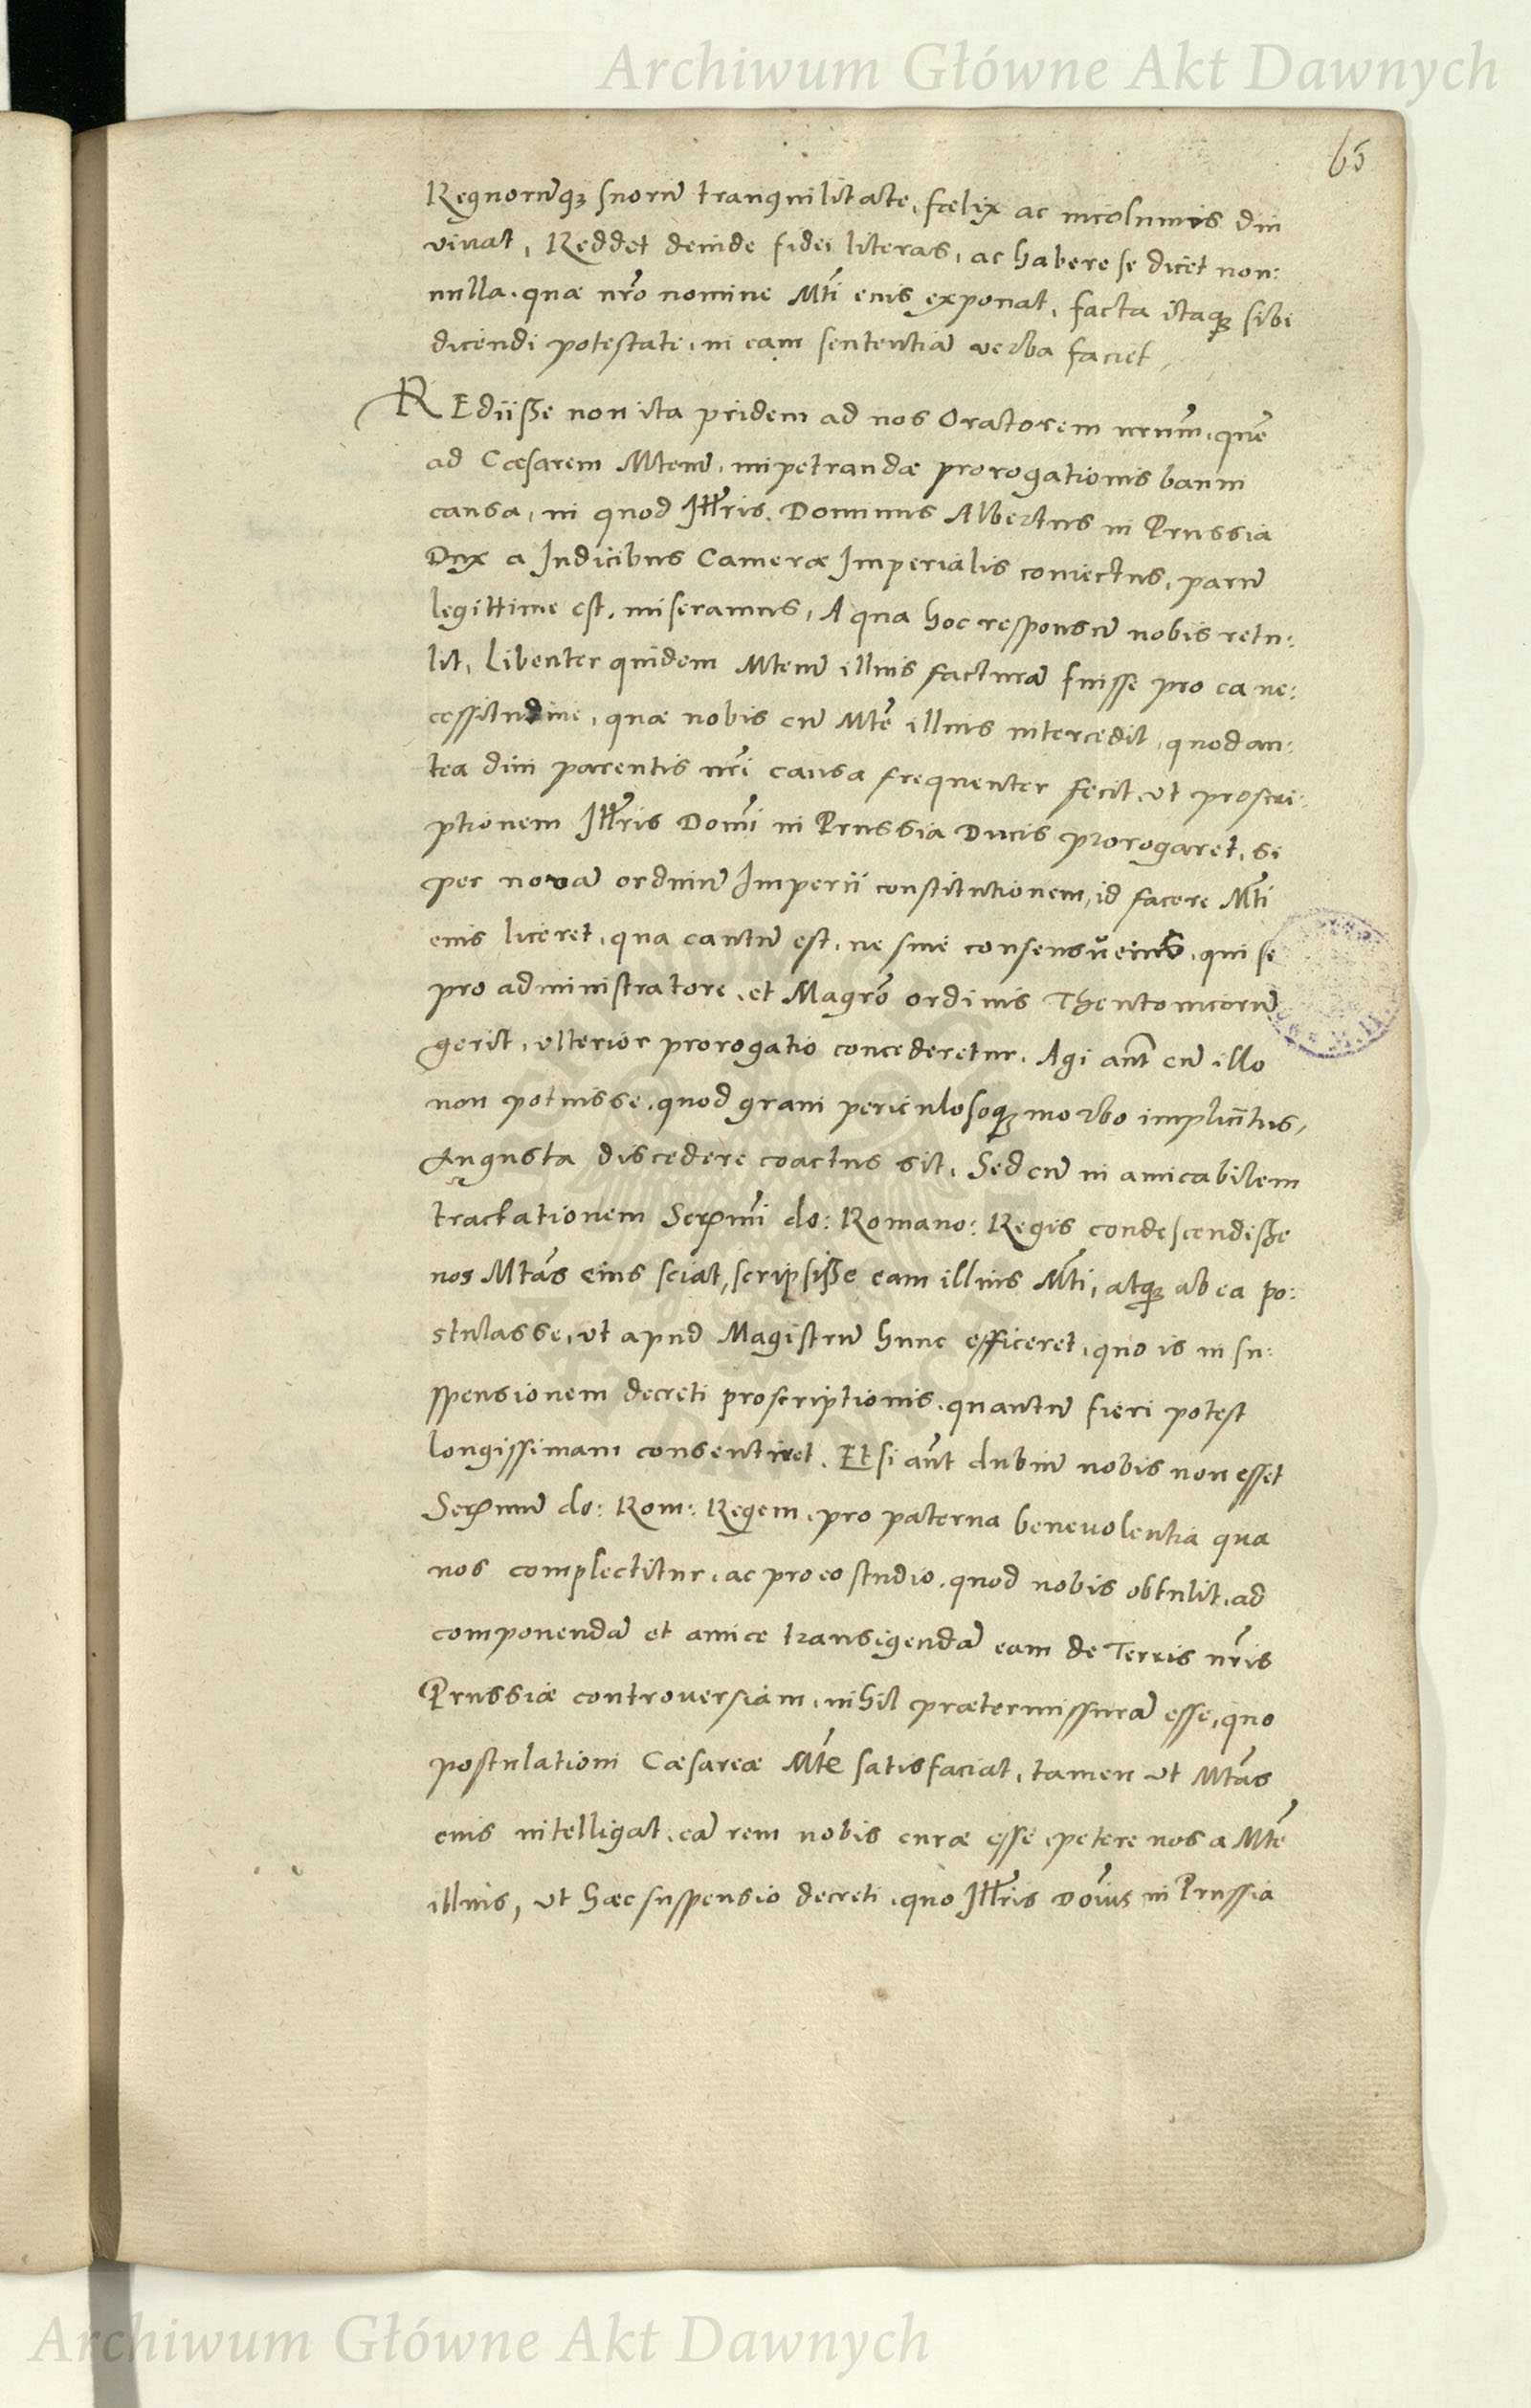 Archiwum Główne Akt Dawnych
65
Regnorūq₃ suorū tranquilitate, fœlix ac incolumis diu
vivat, Reddet deinde fidei literas, ac habere se dicet non:
nulla, quæ nr̃o nomine Mti eius exponat, facta itaq₃ sibi
dicendi potestate, in eam sententiā verba faciet,
REdiisse non ita pridem ad nos Oratorem nrum̃, quē
ad Cæsarem Mtem̃, impetrandæ prorogationis banni
causa, in quod Illr̃is. Dominus Albertus in Prussia
Dux a Iudicibus Cameræ Imperialis coniectus, parū
legittime est, miseramus, A qua hoc responsū nobis retu:
lit, Libenter quidem Mtem̃ illius facturā fuisse pro ea ne:
cessitudine, quæ nobis cū Mtẽ illius intercedit, quod an:
tea diui parentis nr̃i causa frequenter fecit, ut proscri:
ptionem Illr̃is Domĩ in Prussia Ducis prorogaret, si
per novā ordinū Imperii constitutionem, id facere Mti
eius liceret, qua cautū est, ne sine consensu eius, qui se
pro administratore, et Magrõ ordinis Theutonicorū
gerit, ulterior prorogatio concederetur. Agi aut̃ cū illo
non potuisse, quod graui periculosoq₃ morbo implicitus,
Augusta discedere coactus sit. Sed cū in amicabilem
tractationem Serm̃i do: Romano: Regis condescendisse
nos Mtas̃ eius sciat, scripsisse eam illius Mti, atq₃ ab ea po:
stulasse, ut apud Magistrū hunc efficeret, quo is in su:
spensionem decreti proscriptionis, quantū fieri potest
longissimam consentiret. Etsi aut̃ dubiū nobis non esset
Serm̃um do: Rom: Regem, pro paterna benevolentia qua
nos complectitur, ac pro eo studio, quod nobis obtulit, ad
componendā et amice transigendā eam de Terris nr̃is
Prussiæ controuersiam, nihil prætermissurā esse, quo
postulationi Cæsareæ Mtẽ satisfaciat, tamen ut Mtas̃
eius intelligat, eā rem nobis curæ esse, petere nos a Mtẽ
illius, ut hæc suspensio decreti, quo Illr̃is Doĩus in Prussia
Archiwum Główne Akt Dawnych